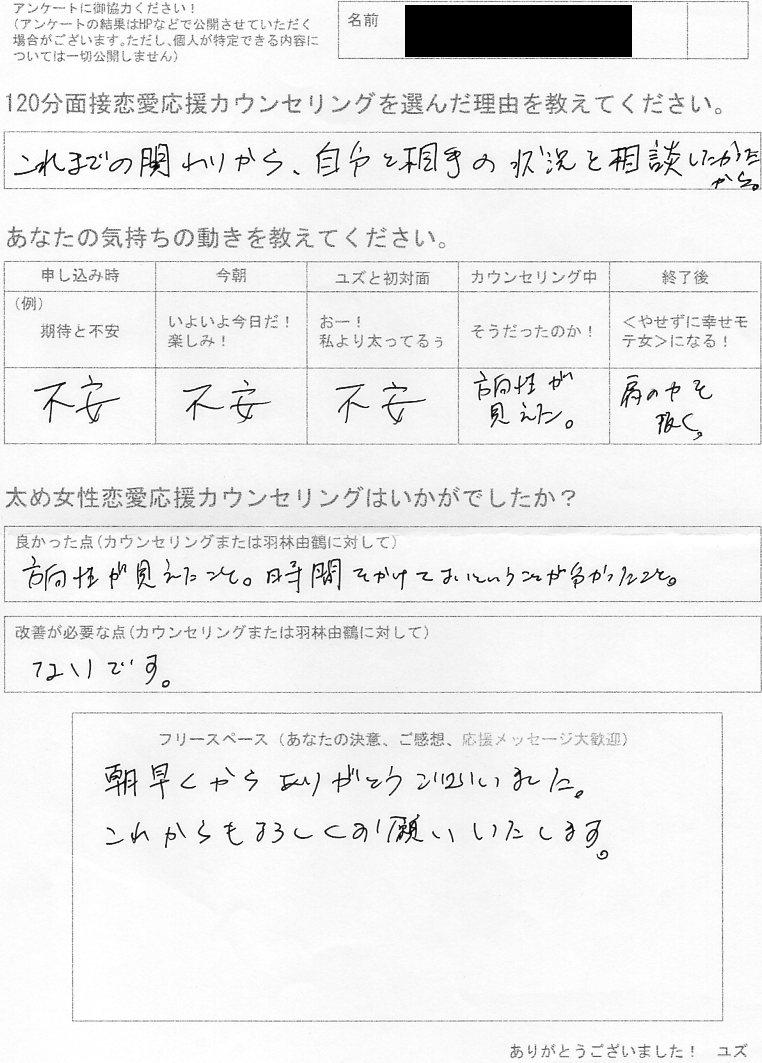 アンケートに御協力ください！
（アンケートの結果はHPなどで公開させていただく
場合がございます。ただし、個人が特定できる内容に
ついては一切公開しません）
名前
120分面接恋愛応援カウンセリングを選んだ理由を教えてください。
これまでの関わりから、自分と相手の状況を相談したかった
から。
あなたの気持ちの動きを教えてください。
申し込み時 今朝 ユズと初対面 カウンセリング中 終了後
（例）
期待と不安
いよいよ今日だ！
楽しみ！
おー！
私より太ってるぅ
そうだったのか！
＜やせずに幸せモ
テ女＞になる！
不安 不安 不安
方向性が
見えた。
肩の力を
抜く。
太め女性恋愛応援カウンセリングはいかがでしたか？
良かった点（カウンセリングまたは羽林由鶴に対して）
方向性が見えたこと。時間をかけてよいということが分かったこと。
改善が必要な点（カウンセリングまたは羽林由鶴に対して）
ないです。
フリースペース（あなたの決意、ご感想、応援メッセージ大歓迎）
朝早くからありがとうございました。
これからもよろしくお願いいたします。
ありがとうございました！ ユズ